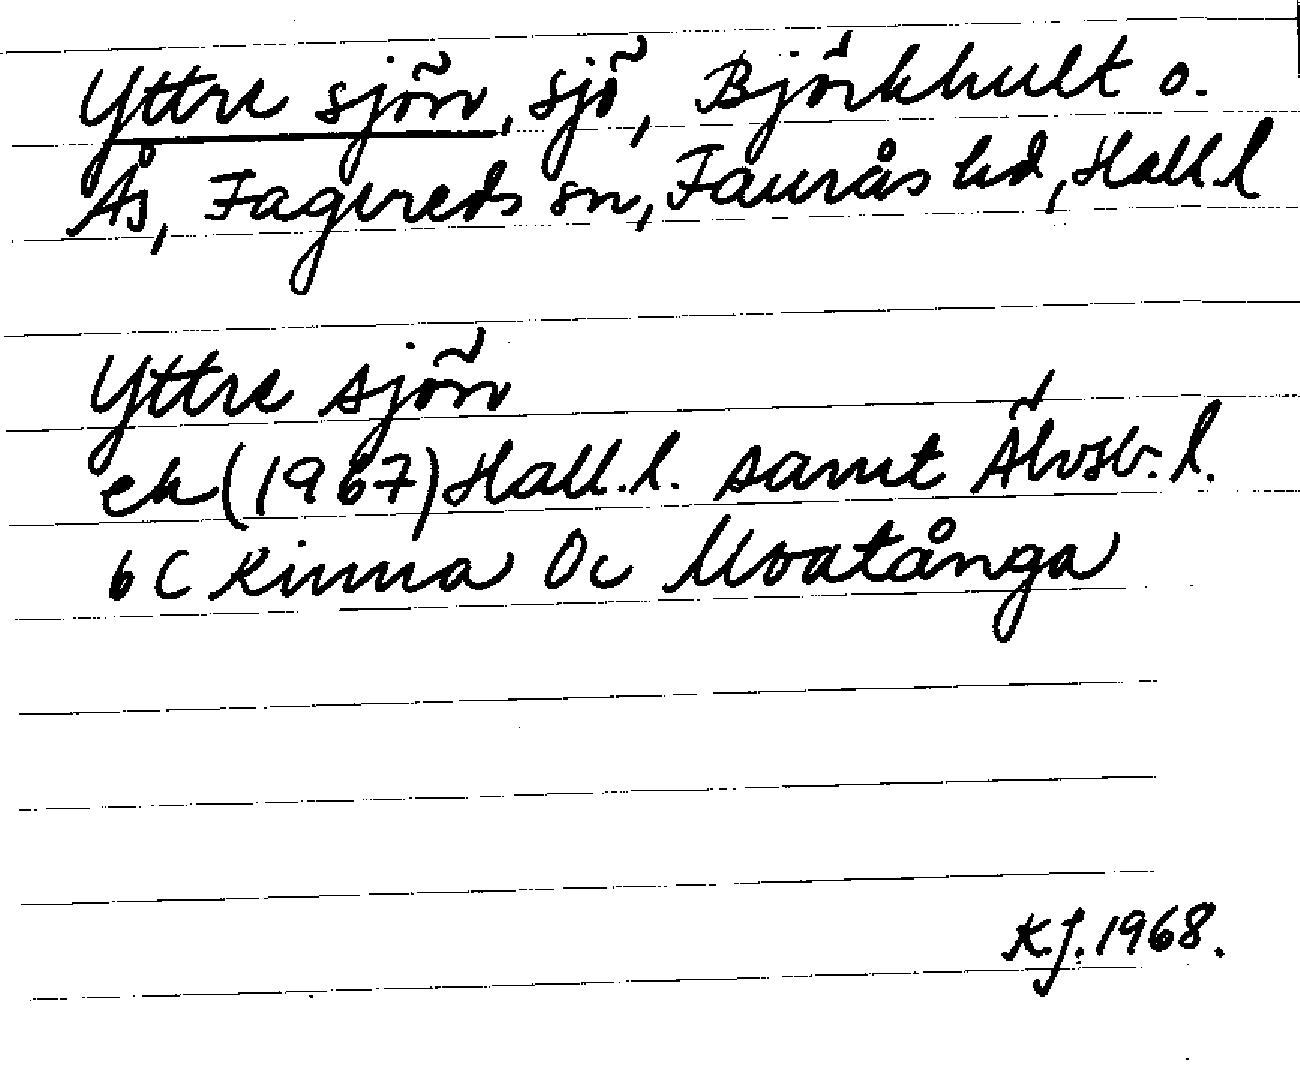 Yttre sjön, sjö, Björkhult o.
Ås, Fagereds sn, Faurås hd, Hall.l
Yttre sjön
ek (1967) Hall.l. samt Älvsb.l.
6C Kinna Oc Ulvatånga
K.J. 1968.